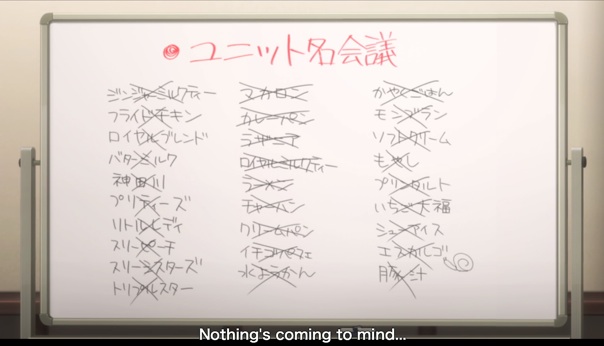 ユニット名会議
ジンジャーミルクティー
フライドチキン
ロイヤルブレンド
バターミルク
神田川
プリティーズ
リトルレディ
スリーピーチ
スリーシスターズ
トリプルスター
マカロン
カレーパン
ラザニア
ロイヤルミルクティー
ラーメン
チャーハン
クリームパン
イチゴパフェ
水ようかん
かやくごはん
モンブラン
ソフトクリーム
もやし
プリンタルト
いちご大福
シューアイス
エスカルゴ
豚汁
Nothing's coming to mind...